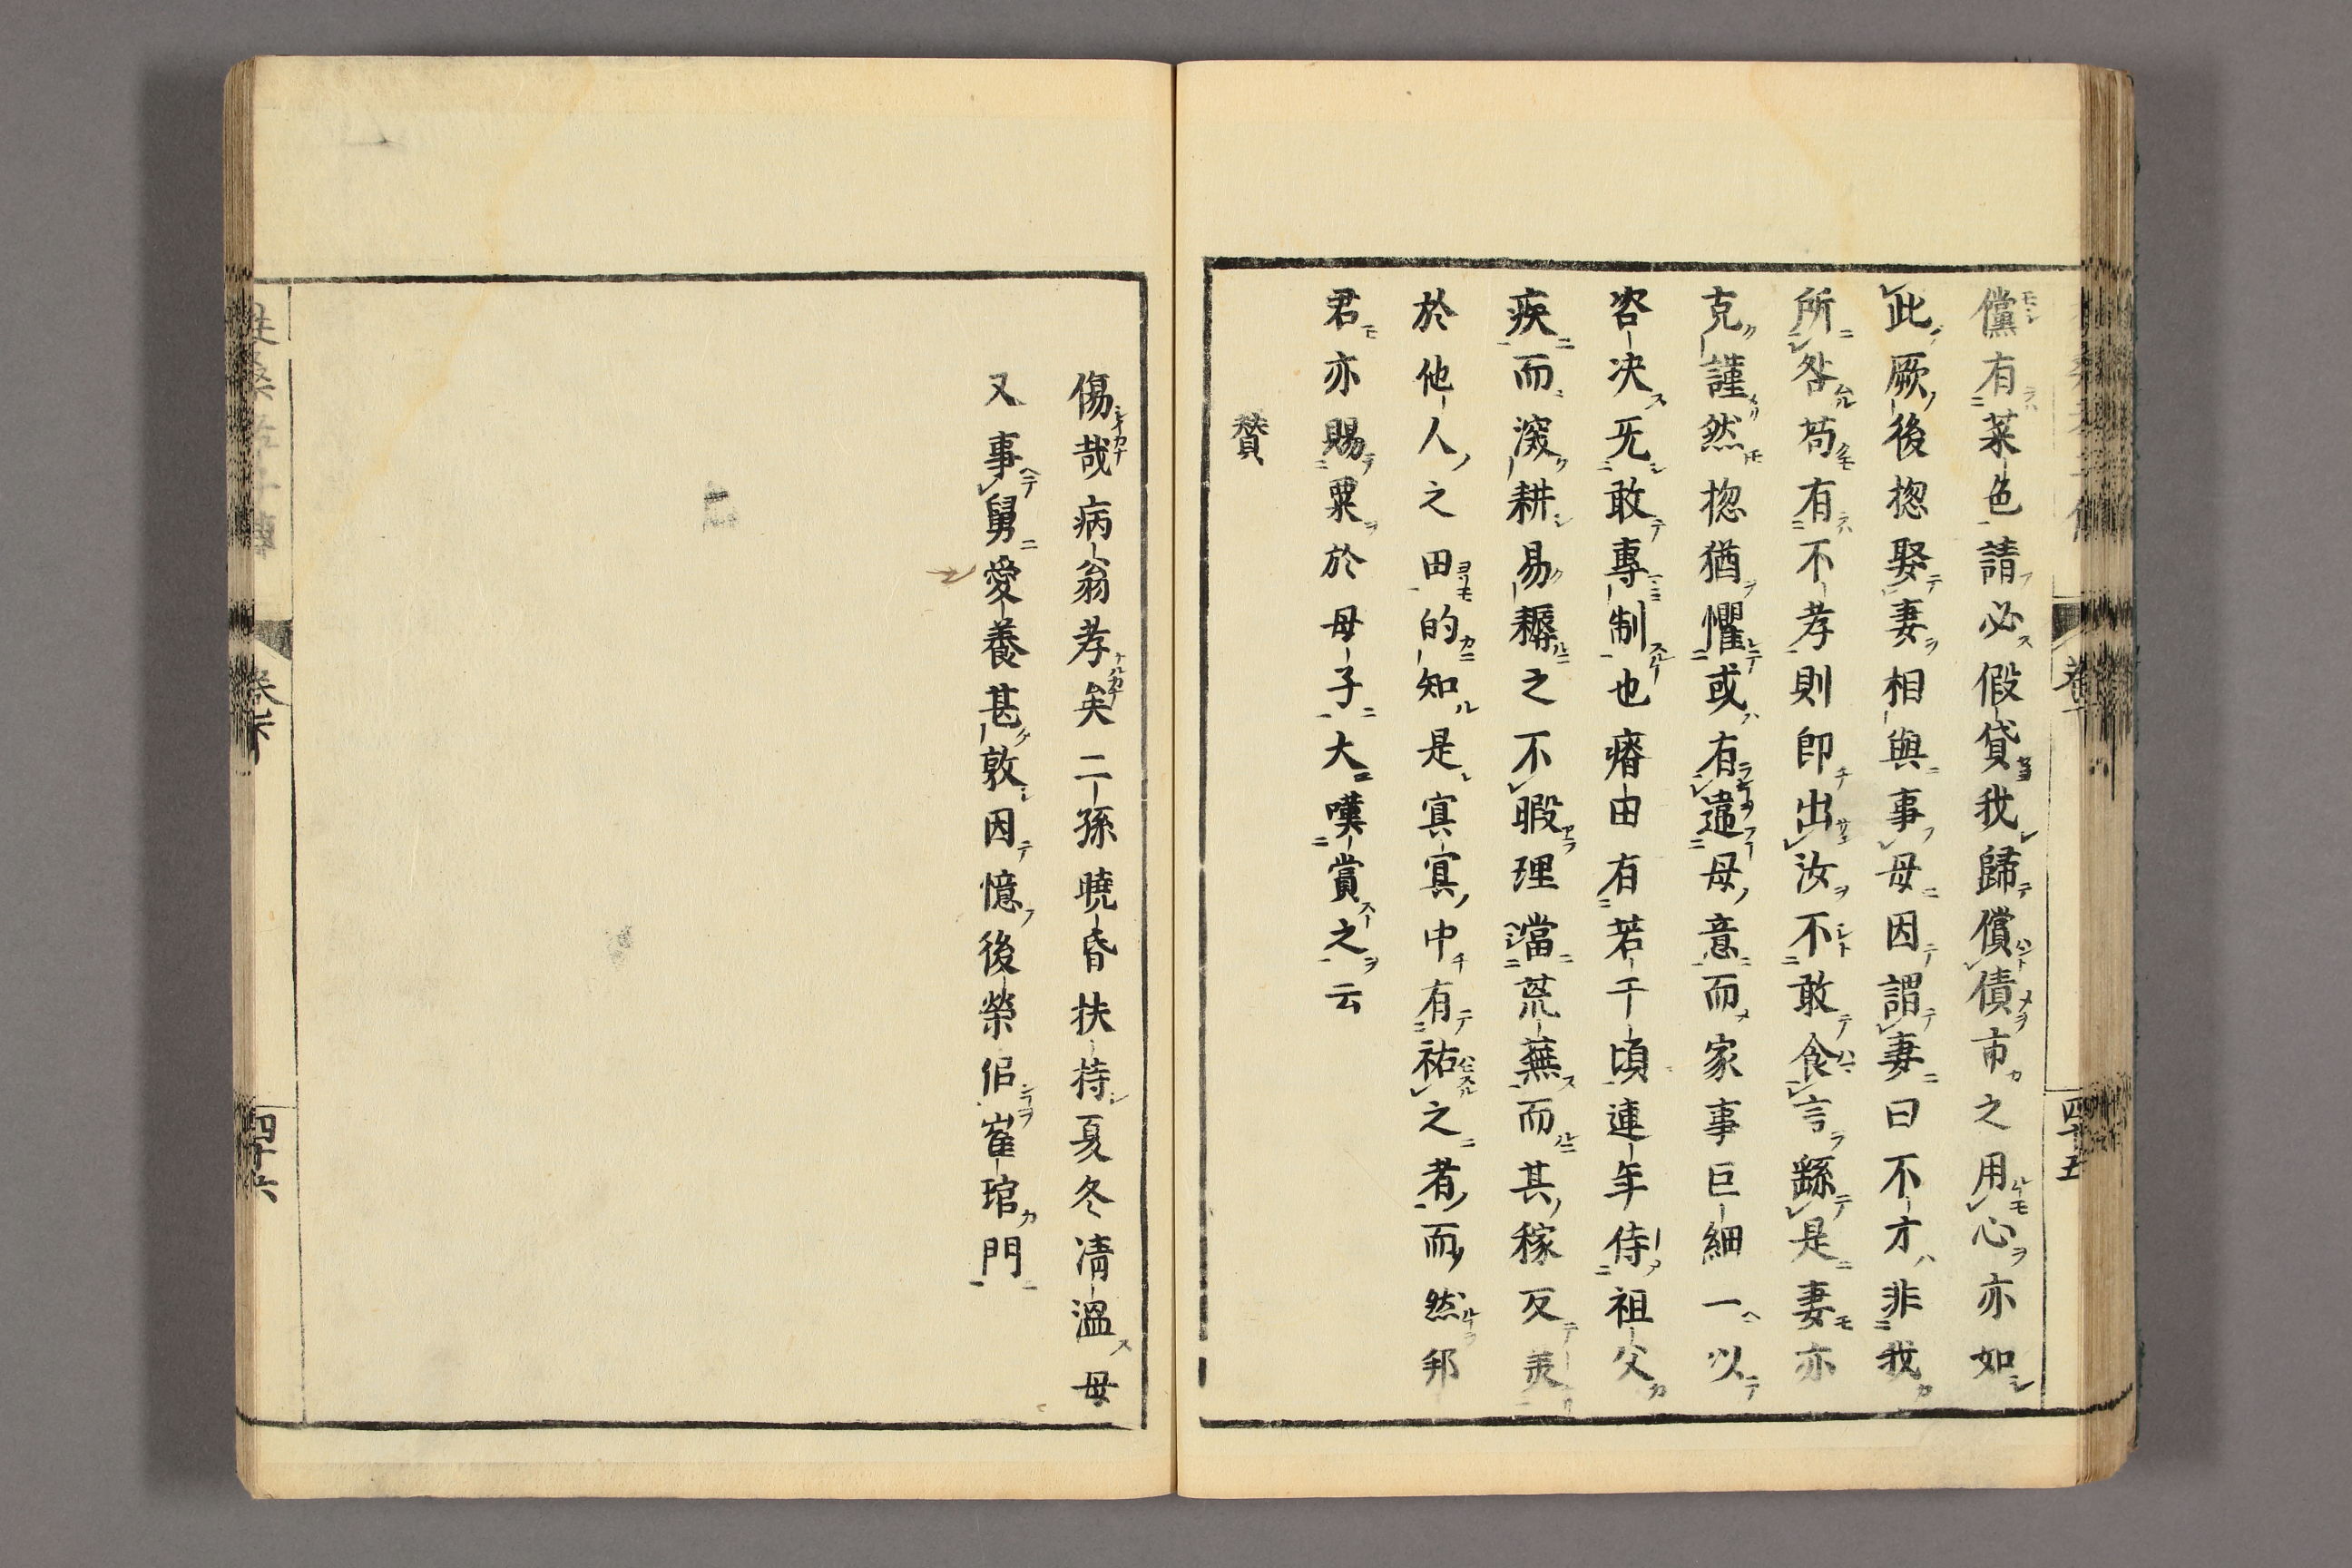 儻有菜色請必假貸我歸償債市之用心亦如
此厥後揔娶妻相與事母因謂妻曰不才非我
所咎苟有不孝則即出汝不敢食言繇是妻亦
克謹然揔猶懼或有違母意而家事巨細一以
咨决旡敢專制也瘠由有若干頃連年侍祖父
疾而深耕易耨之不暇理當荒蕪而其稼反羙
於他人之田的知是寘寘中有祐之者而然邦
君亦賜粟於母子大嘆賞之云
賛
傷哉病翁孝矣二孫曉昏扶持夏冬凊温母
又事舅愛養甚敦因憶後榮侶崔琯門
四十五
四十六